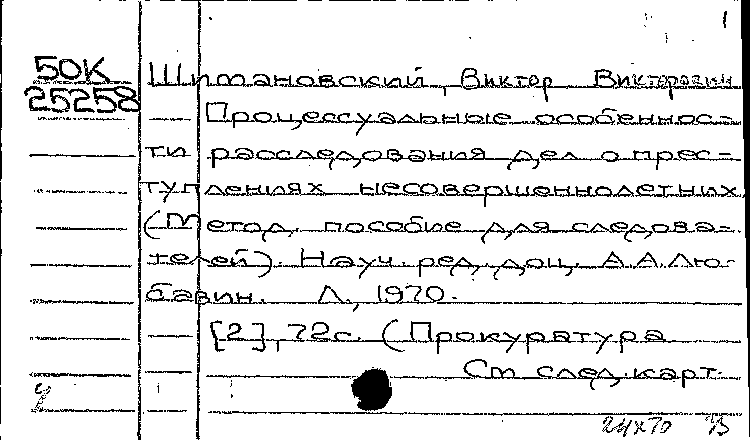 1
50К Шimановский, Виктор Викторович
25258 Процессуальные особеннос=
ти расследования дел о прес=
туплениях несовершеннолетних
(Метод. пособие для следова=
телей). Науч. ред. доц. А.А.Лю-
бавин. Л., 1970.
[2], 72с. (Прокуратура
См след. карт.